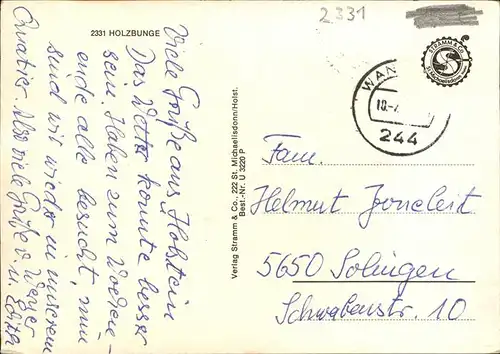 2331
2331 HOLZBUNGE
STRAMM & CO.
Viele Grüße aus Holstein
Das Wetter könnte besser
sein. Haben zum Wochen-
ende alle besucht, nun
sind wir wieder in unserem
Quartier. Also viele Grüße v. Werner
u. Edith
Verlag Stramm & Co., 222 St. Michaelisdonn/Holst.
Best.-Nr. U 3220 P
WAN
10.-
244
Fam.
Helmut
5650 Solingen
Schwabenstr. 10